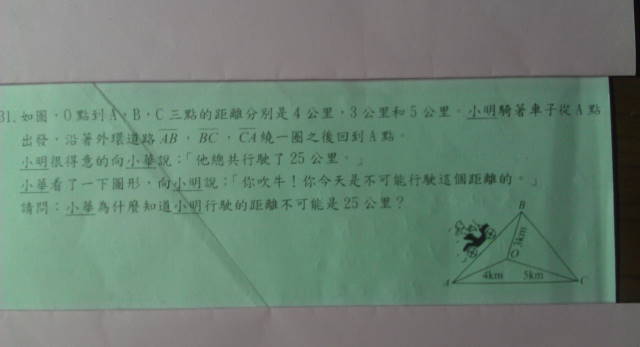 31. 如圖，O點到A，B，C三點的距離分別是4公里，3公里和5公里。小明騎著車子從A點
出發，沿著外環道路AB，BC，CA繞一圈之後回到A點。
小明很得意的向小華說：「他總共行駛了25公里。」
小華看了一下圖形，向小明說：「你吹牛！你今天是不可能行駛這個距離的。」
請問：小華為什麼知道小明行駛的距離不可能是25公里？
B
3km
O
4km 5km
A C